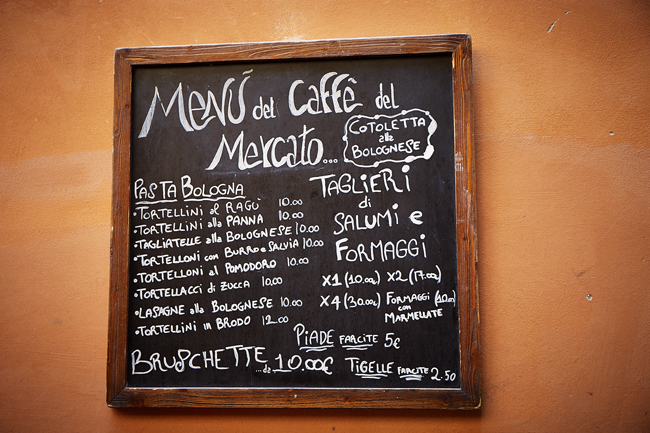 MENÚ del CAFFÊ del
MERCATO...
COTOLETTA
alla
BOLOGNESE
PASTA BOLOGNA
•TORTELLINI al RAGÙ 10.00
•TORTELLINI alla PANNA 10.00
•TAGLIATELLE alla BOLOGNESE 10.00
•TORTELLONI con BURRO e SALVIA 10.00
•TORTELLONI al POMODORO 10.00
•TORTELLACCI di ZUCCA 10.00
•LASAGNE alla BOLOGNESE 10.00
•TORTELLINI in BRODO 12.00
BRUSCHETTE ...da 10.00€
TAGLIERI
di
SALUMI e
FORMAGGI
X1 (10.00€) X2 (17.00€)
X4 (30.00€) FORMAGGI (10.00)
con
MARMELLATE
PIADE FARCITE 5€
TIGELLE FARCITE 2.50